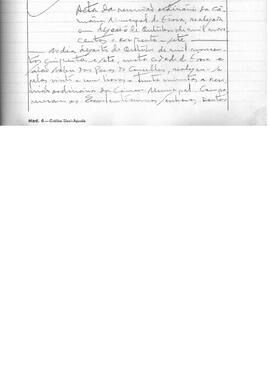 Acta da reunião ordinária da Câ-
mara Municipal de Évora, realizada
em dezoito de Outubro de mil nove-
centos e cincoenta e sete
No dia dezoito de Outubro de mil novecen-
tos cinquenta e sete, nesta cidade de Évora e
salão nobre dos Paços do Concelho, realizou-se
pelas vinte e uma horas e trinta minutos a reu-
nião ordinária da Câmara Municipal. Compa-
receram os Excelentíssimos senhores, doutor
Mod. 6 —